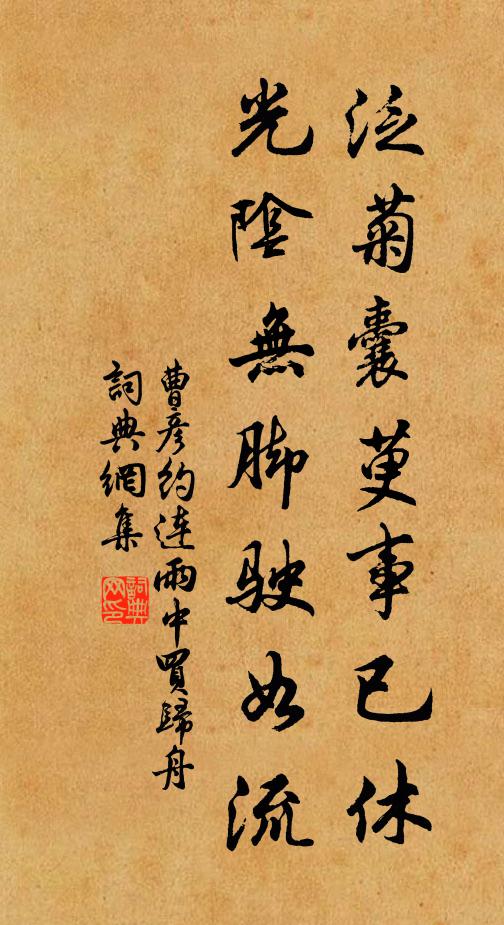 泛菊囊萸事已休
光陰無脚駛如流
曹彦約連雨中買歸舟
詞典網集
詞典网印